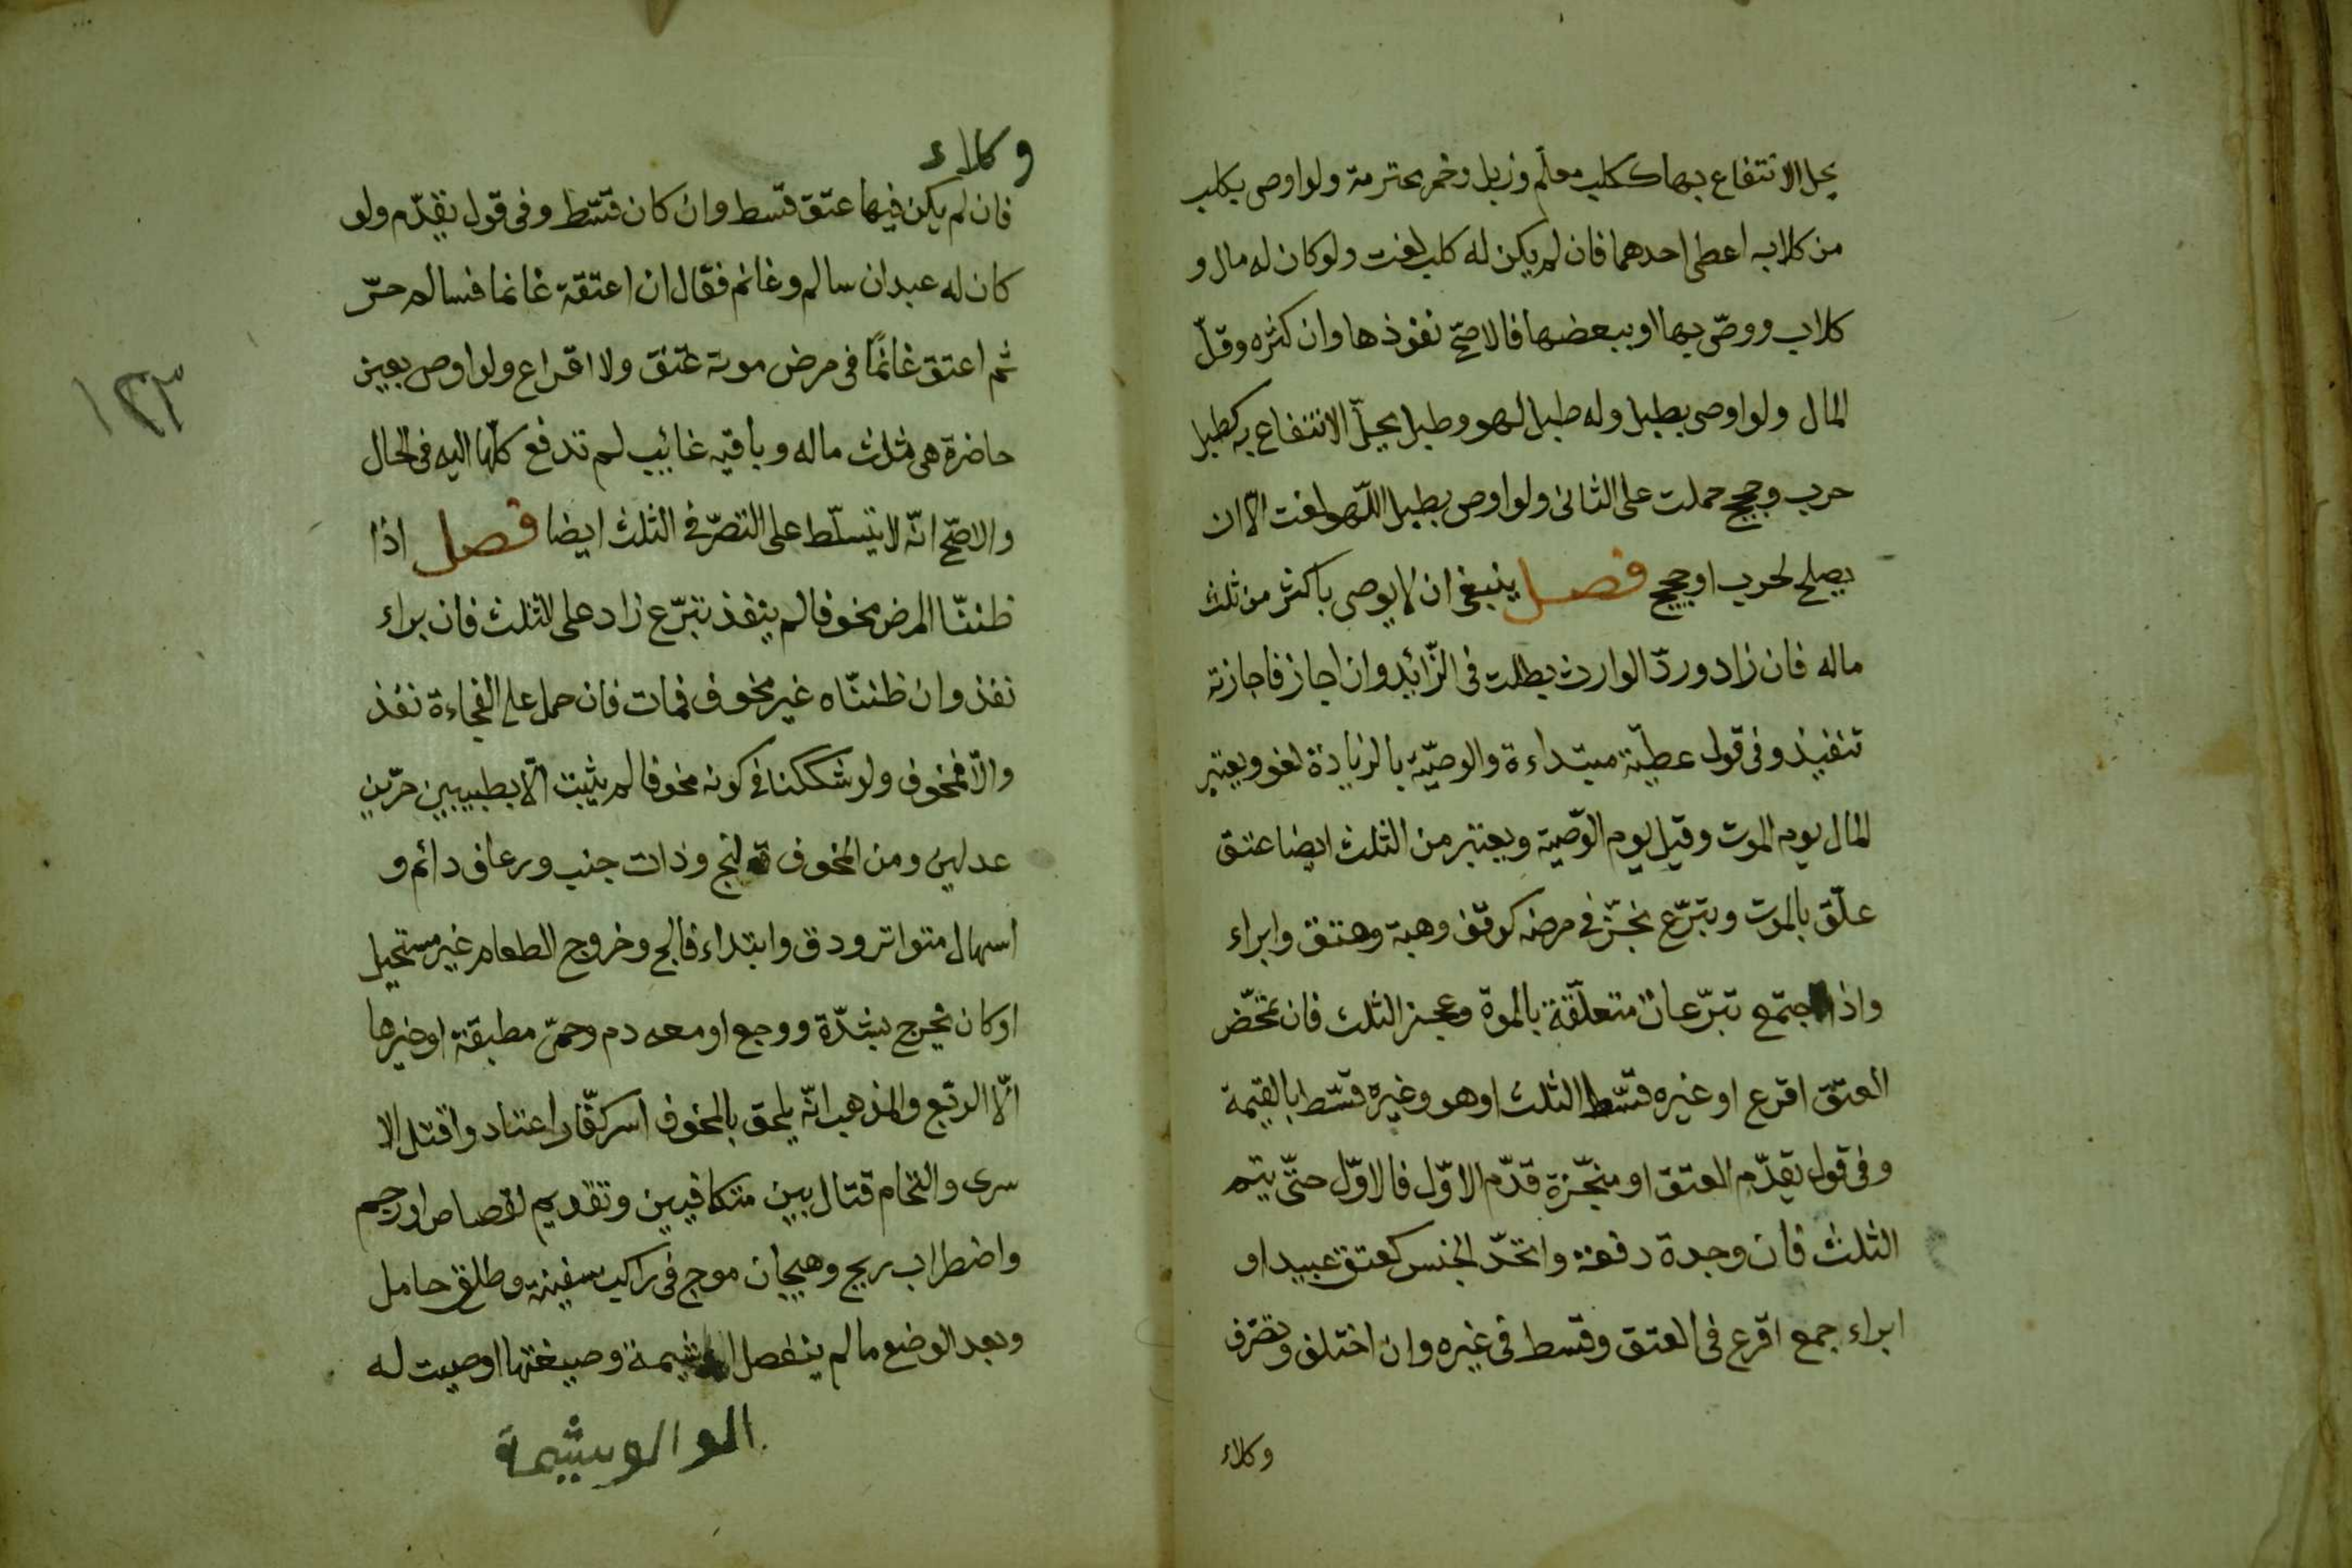 يحل الانتفاع بها ككلب معلّم وزبل وخمر محترمة ولو اوصى بكلب
من كلابه اعطى احدهما فان لم يكن له كلب لغت ولو كان له مال و
كلاب ووصّى بها او ببعضها فالاصحّ نفوذها وان كثره وقلّ
المال ولو اوصى بطبل وله طبل لهو وطبل يحلّ الانتفاع به كطبل
حرب وحجيج حملت على الثانى ولو اوصى بطبل اللّهو لغت الّا ان
يصلح لحرب او حجيج فصل ينبغى ان لا يوصى باكثر من ثلث
ماله فان زاد وردّ الوارث بطلت فى الزّائد وان اجاز فاجازته
تنفيذ وفى قول عطيّة مبتداءة والوصيّة بالزيادة لغو ويعتبر
المال يوم الموت وقيل يوم الوّصية ويعتبر من الثلث ايضا عتق
علّق بالموت وبترّع نجّز فى مرضه كوقف وهبة وعتق وابراء
واذا اجتمع تبرّعات متعلّقة بالموة وعجز الثلث فان تمحّض
العتق اقرع او غيره قسّط الثلث او هو وغيره قسّط بالقيمة
وفى قول يقدّم العتق او منجّزة قدّم الاوّل فالاوّل حتّى يتم
الثلث فان وجدة دفعة واتحّد الجنس كعتق عبيد او
ابراء جمع اقرع فى العتق وقسط فى غيره وان اختلف وتصّرف
وكلاء
وكلاء
فان لم يكن فيها عتق قسّط وان كان قسّط وفى قول يقدّم ولو
كان له عبدان سالم وغانم فقال ان اعتقة غانما فسالم حرّ
ثم اعتق غانمًا فى مرض موته عتق ولا اقراع ولو اوصى بعين
حاضرة هى ثلث ماله وباقيه غائب لم تدفع كلّها اليه فى الحال
والاصحّ انّه لا يتسلّط على التصرّف فى الثلث ايضا فصل اذا
ظننّا المرض مخوفا لم ينفذ تبرّع زاد على الثلث فان براء
نفذ وان ظننّاه غير مخوف فمات فان حمل على الفجاءة نفذ
والّا فمخوف ولو شككنا فى كونه مخوفا لم يثبت الّا بطبيبين حرّين
عدلين ومن المخوف قولنج وذات جنب ورعاف دائم و
اسهال متواتر ودق وابتداء فالج وخروج الطعام غير مستحيل
او كان يخرج بشدّة ووجع او معه دم وحمّى مطبقة او غيرها
الّا الربّع والمذهب انّه يلحق بالمخوف اسر كفّار اعتاد واقتل الا
سرى والتحام قتال بين متكافيين وتقديم لقصاص او رجم
واضطراب ريح وهيجان موج فى راكب سفينة وطلق حامل
وبعد الوضع ما لم ينفصل المشيمة وصيغتها اوصيت له
١٢٣